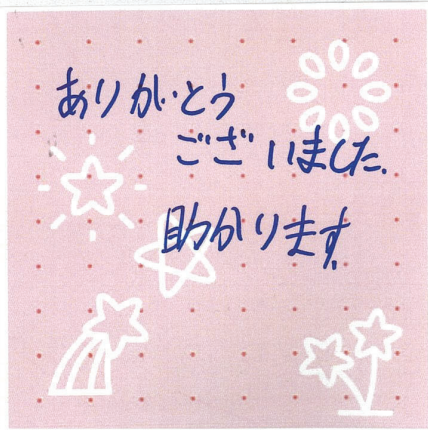 ありがとう
ございました.
助かります.